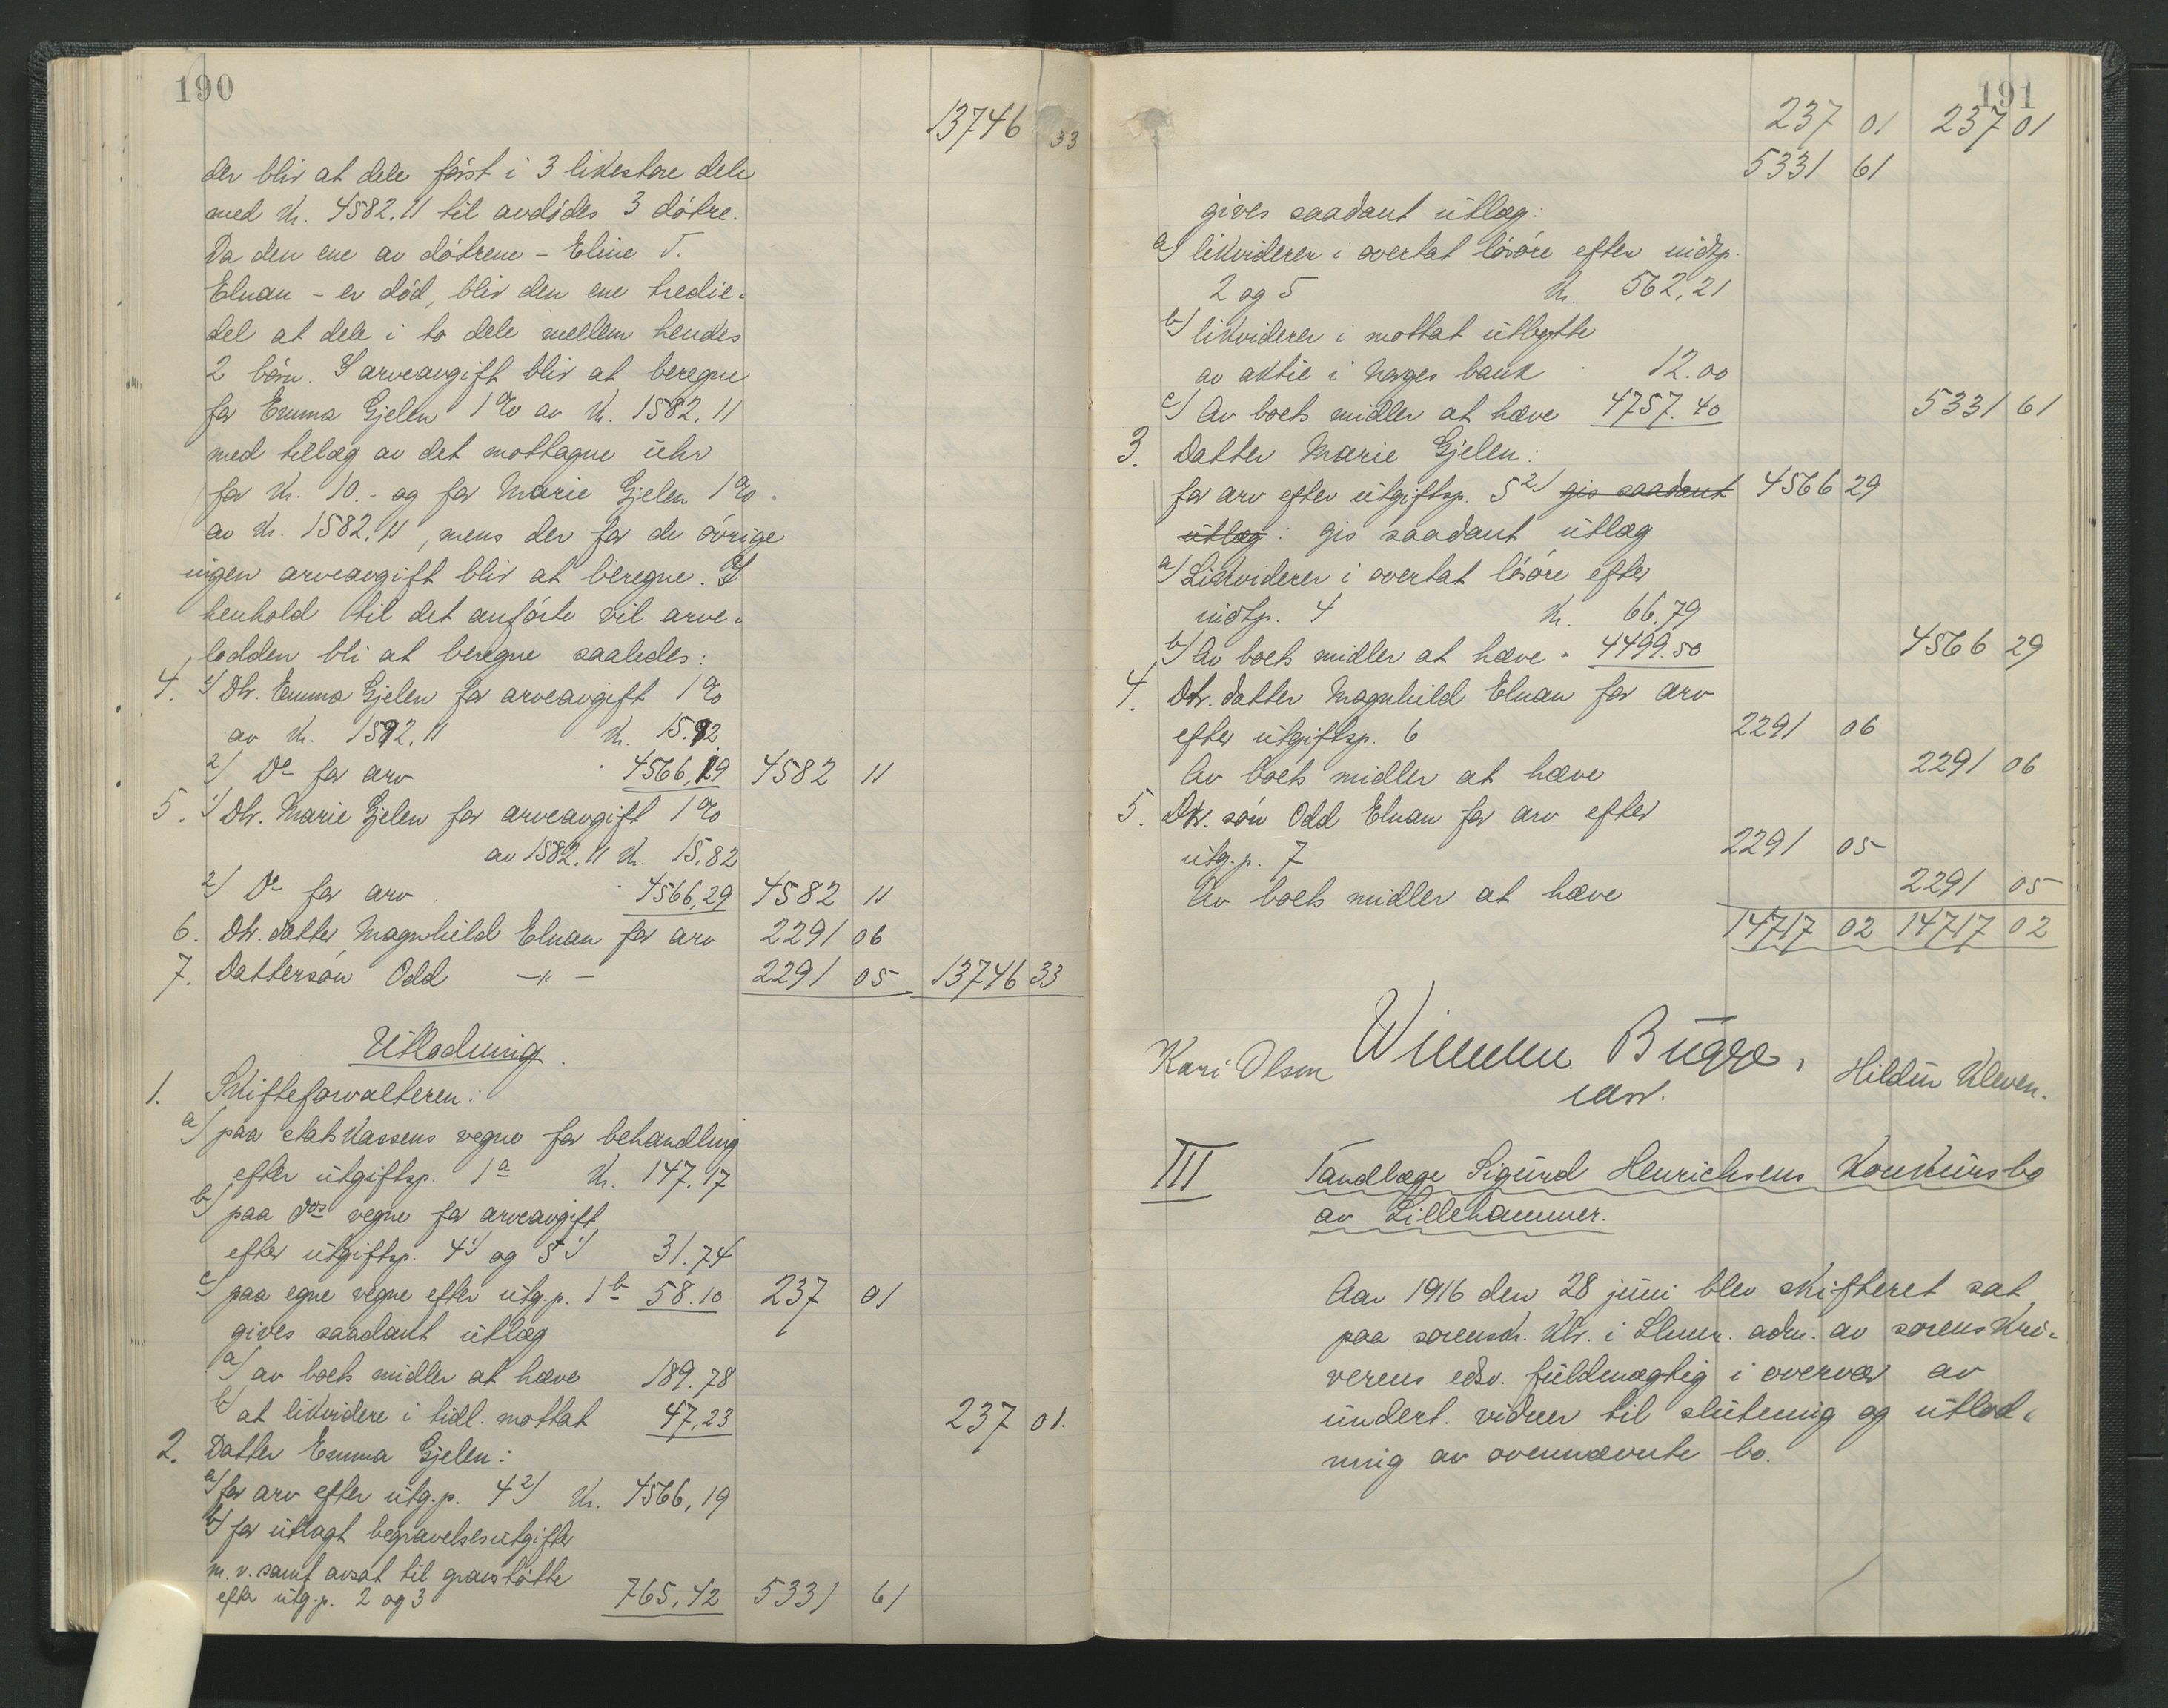 190
13746 33
der blir at dele först i 3 likestore dele
med Kr. 4582.11 til avdödes 3 dötre.
Da den ene av dötrene - Eline T.
Elnan - er död, blir den ene tredie-
del at dele i to dele mellem hendes
2 börn. I arveavgift blir at beregne
for Emma Gjelen 1% av Kr. 1582.11
med tillæg av det mottagne uhr
for Kr. 10.- og for Marie Gjelen 1%
av Kr. 1582.11, mens der for de övrige
ingen arveavgift blir at beregne. I
henhold til det anförte vil arve-
lodden bli at beregne saaledes:
4. 1) Dtr. Emma Gjelen for arveavgift 1%
av Kr. 1592.11 Kr. 15.92
2) Do for arv " 4566,19 4582 11
5. 1) Dtr. Marie Gjelen for arveavgift 1%
av 1582.11 Kr. 15,82
2) Do for arv " 4566,29 4582 11
6. Dtr. datter Magnhild Elnan for arv 2291 06
7. Dattersön Odd -"- 2291 05 13746 33
Utlodning.
1. Skifteforvalteren:
a) paa statskassens vegne for behandling
efter utgiftsp. 1a Kr. 147.17
b) paa dos vegne for arveavgift
efter utgiftsp. 4 1) og 5 1) 31.74
c) paa egne vegne efter utg.p. 1b 58.10 237 01
gives saadant utlæg
a) av boets midler at hæve 189.78
b) at likvidere i tidl. mottat 47,23 237 01.
2. Datter Emma Gjelen:
a) for arv efter utg.p. 4 2) Kr. 4566,19
b) for utlagt begravelsesutgifter
m.v. samt avsat til gravstötte
efter utg.p. 2 og 3 765,42 5331 61
191
237 01 237 01
5331 61
gives saadant utlæg:
a) likviderer i overtat lösöre efter indtp.
2 og 5 Kr. 562,21
b) likviderer i mottat utbytte
av aktie i Norges bank " 12.00
c) Av boets midler at hæve 4757.40 5331 61
3. Datter Marie Gjelen:
for arv efter utgiftsp. 5 2) gis saadant 4566 29
utlæg: gis saadant utlæg
a) Likviderer i overtat lösöre efter
indtp. 4 Kr. 66,79
b) Av boets midler at hæve " 4499.50 4566 29
4. Dtr. datter Magnhild Elnan for arv
efter utgiftsp. 6 2291 06
Av boets midler at hæve 2291 06
5. Dtr. sön Odd Elnan for arv efter
utg.p. 7 2291 05
Av boets midler at hæve 2291 05
14717 02 14717 02
Kari Olsen Bugge, Hildur Kleven.
edsv.
III Tandlæge Sigurd Henrichsens Konkursbo
av Lillehammer.
Aar 1916 den 28 juni blev skifteret sat
paa sorensk. Ktr. i Lhmr. adm. av sorenskri-
verens edsv. fuldmægtig i overvær av
undert. vidner til slutning og utlod-
ning av ovennævnte bo.